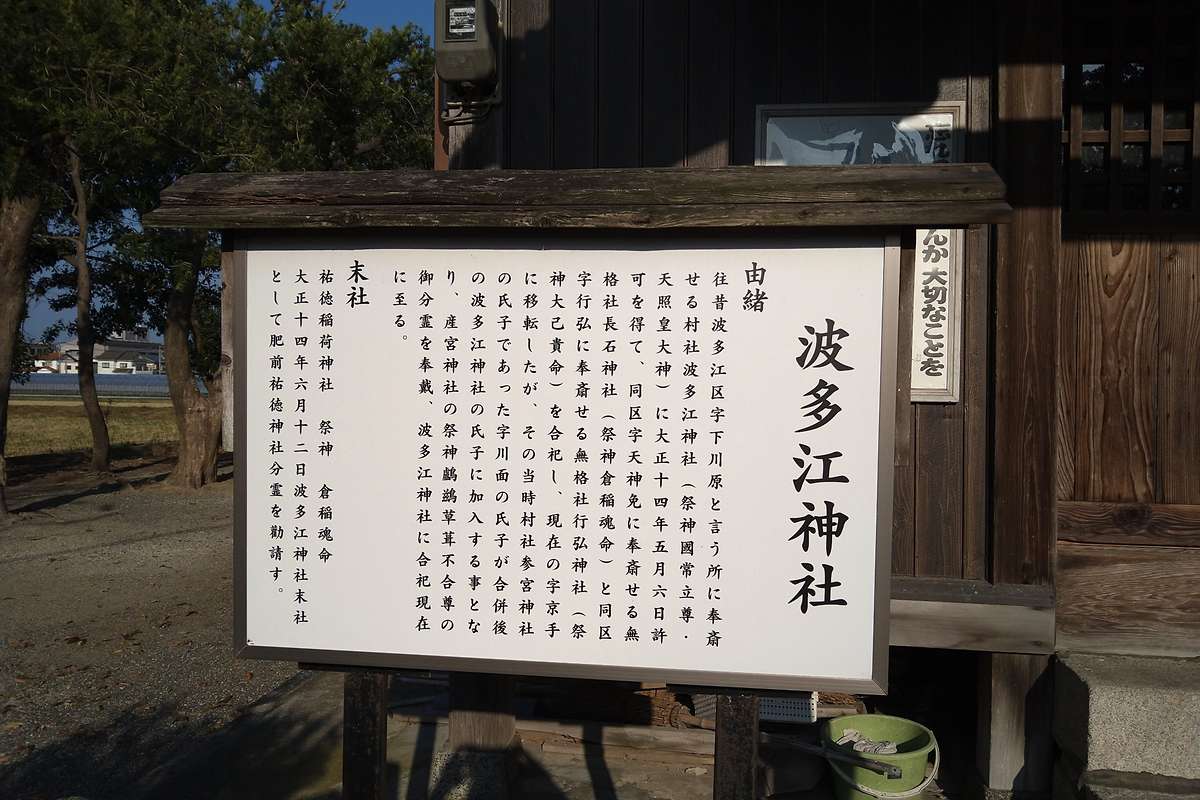 波多江神社
由緒
往昔波多江区字下川原と言う所に奉斎
せる村社波多江神社（祭神國常立尊・
天照皇大神）に大正十四年五月六日許
可を得て、同区字天神免に奉斎せる無
格社長石神社（祭神倉稲魂命）と同区
字行弘に奉斎せる無格社行弘神社（祭
神大己貴命）を合祀し、現在の字京手
に移転したが、その当時村社参宮神社
の氏子であった字川面の氏子が合併後
の波多江神社の氏子に加入する事とな
り、産宮神社の祭神鸕鷀草葺不合尊の
御分霊を奉戴、波多江神社に合祀現在
に至る。
末社
祐徳稲荷神社　祭神　倉稲魂命
大正十四年六月十二日波多江神社末社
として肥前祐徳神社分霊を勧請す。
んか 大切なことを